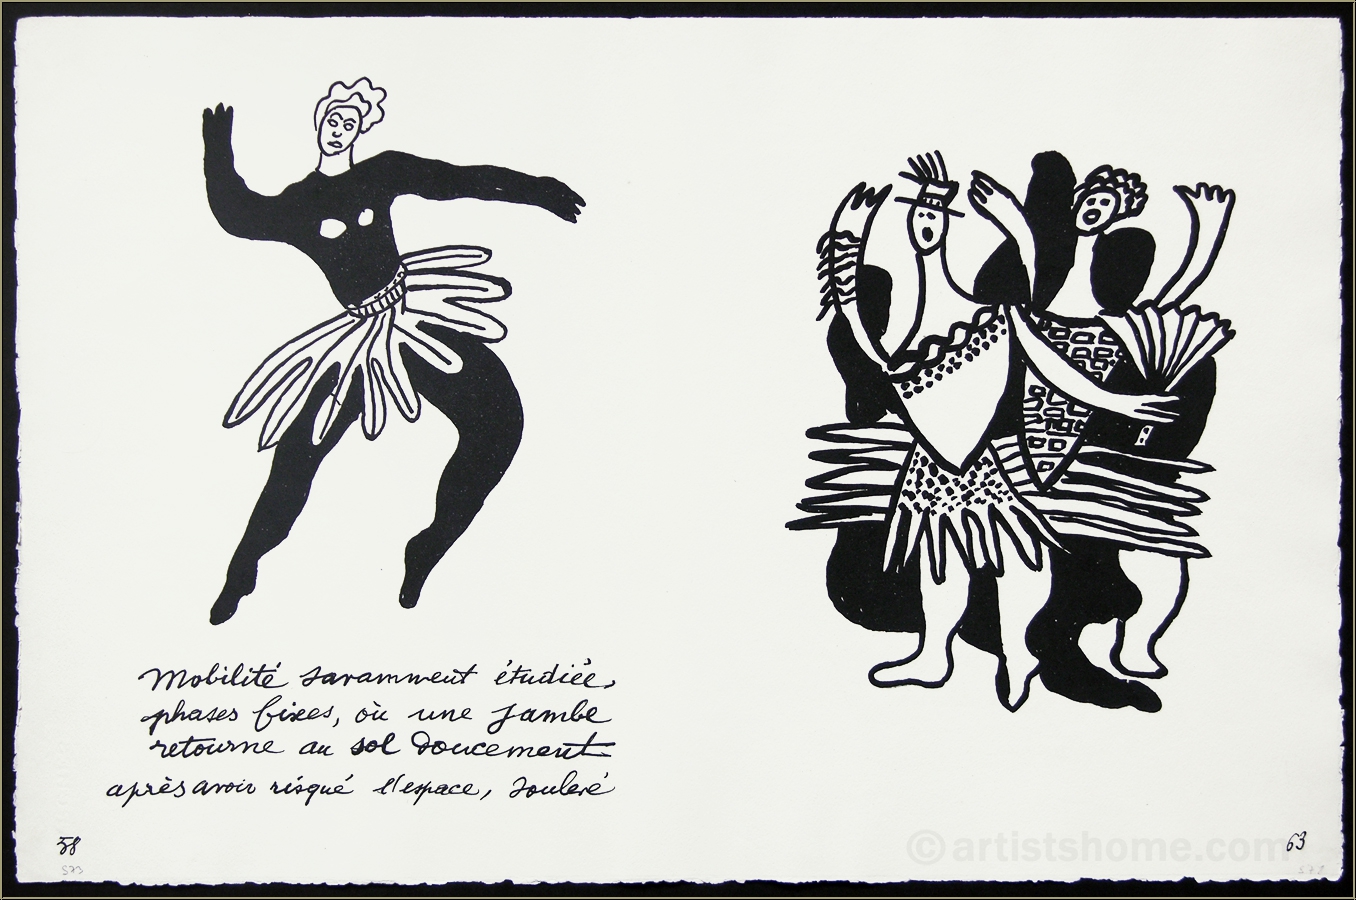 Mobilité savamment étudiée,
phases fixes, où une jambe
retourne au sol doucement
après avoir risqué l'espace, soulevé
58
573
63
©artistshome.com